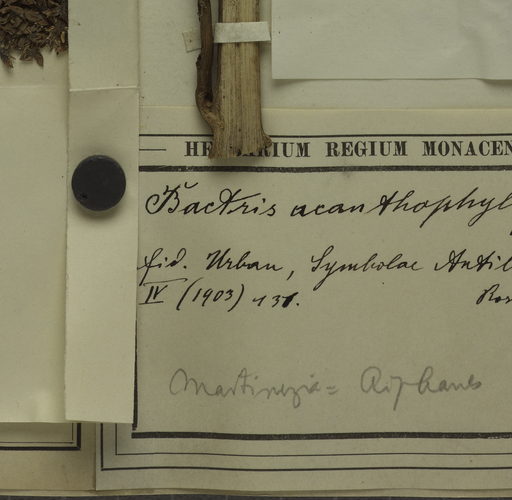 HERBARIUM REGIUM MONACEN
Bactris acanthophyl
fid. Urban, Symbolae Antil
IV (1903) 131. Ros
Martinezia = Aiphanes